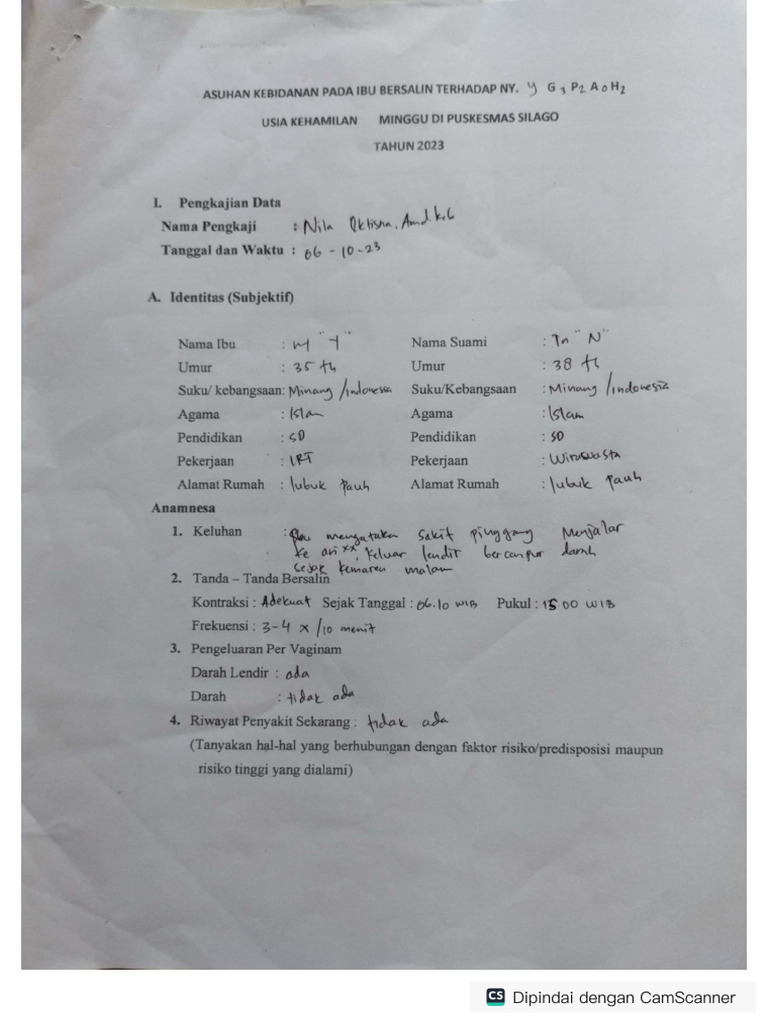 ASUHAN KEBIDANAN PADA IBU BERSALIN TERHADAP NY. Y G3 P2 A0 H2
USIA KEHAMILAN MINGGU DI PUSKESMAS SILAGO
TAHUN 2023
I. Pengkajian Data
Nama Pengkaji : Nila Oktisna, Amd.Keb
Tanggal dan Waktu : 06 - 10 - 23
A. Identitas (Subjektif)
Nama Ibu : Ny "Y" Nama Suami : Tn "N"
Umur : 35 th Umur : 38 th
Suku/ kebangsaan: Minang /indonesia Suku/Kebangsaan : Minang /indonesia
Agama : Islam Agama : Islam
Pendidikan : SD Pendidikan : SD
Pekerjaan : IRT Pekerjaan : Wiraswasta
Alamat Rumah : lubuk Pauh Alamat Rumah : lubuk Pauh
Anamnesa
1. Keluhan : Ibu mengatakan Sakit pinggang Menjalar
ke ari xx, keluar lendir bercampur darah
sejak kemaren malam
2. Tanda – Tanda Bersalin
Kontraksi : Adekuat Sejak Tanggal : 06.10 WIB Pukul : 15 00 WIB
Frekuensi : 3-4 x /10 menit
3. Pengeluaran Per Vaginam
Darah Lendir : ada
Darah : tidak ada
4. Riwayat Penyakit Sekarang : tidak ada
(Tanyakan hal-hal yang berhubungan dengan faktor risiko/predisposisi maupun
risiko tinggi yang dialami)
CS Dipindai dengan CamScanner